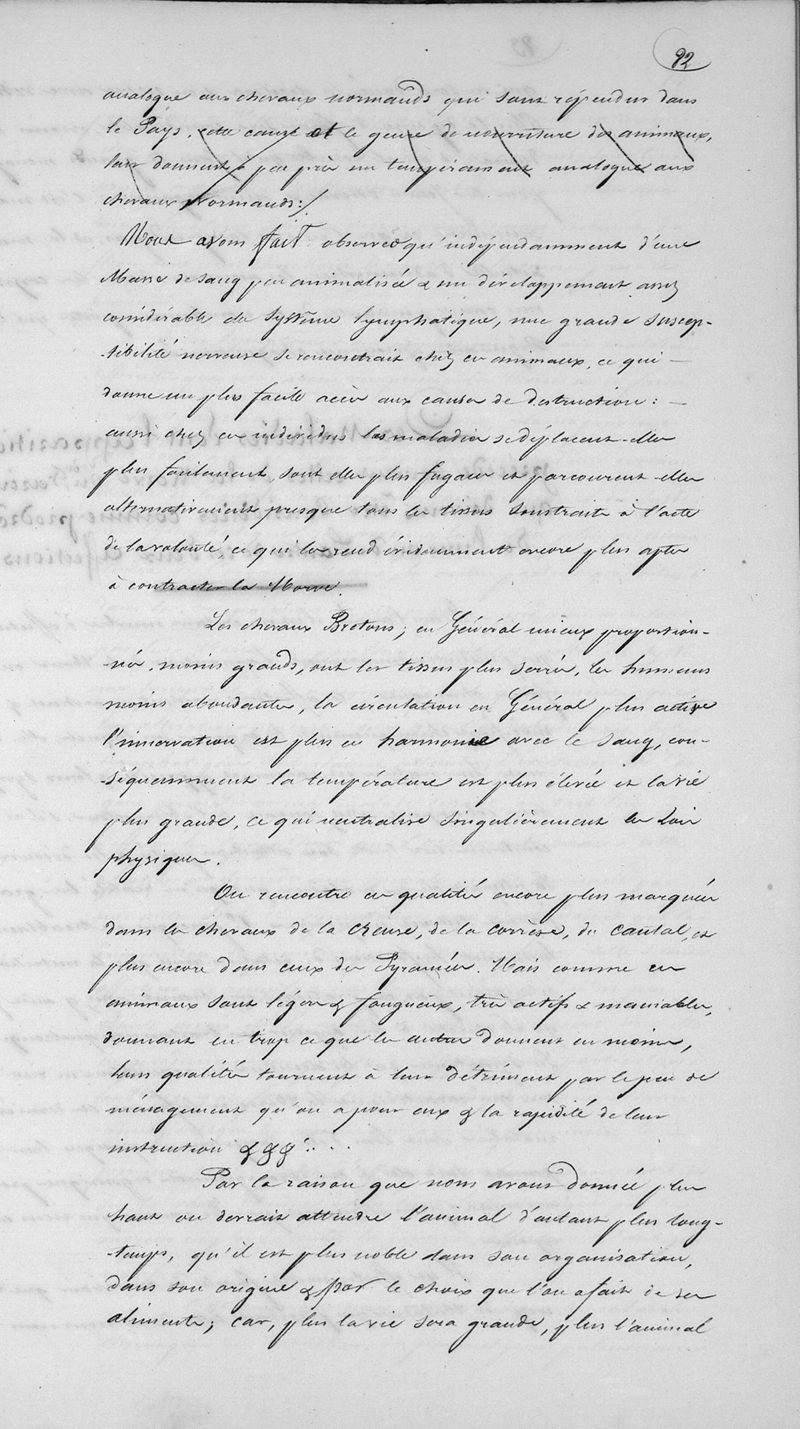 82
analogue aux chevaux normands qui sont répendus dans
le Pays, cette cause et le genre de nourriture des animaux,
leur donnent à peu près un tempérament analogue aux
chevaux Normands:/
Nous avons fait observer qu'indépendamment d'une
Masse de sang peu animalisée & un développement assez
considérable du Système lymphatique, une grande suscep-
-tibilité nerveuse se rencontrait chez ces animaux, ce qui —
donne un plus facile accès aux causes de destruction: —
aussi chez ces individus les maladies se déplacent-elles
plus facilement, sont elles plus fugaces et parcourent-elles
alternativement presque tous les tissus soustraits à l'acte
de la volonté, ce qui les rend évidemment encore plus aptes
à contracter la Morve.
Les chevaux Bretons; en Général mieux proportion-
-nés, moins grands, ont les tissus plus serrés, les humeurs
moins abondantes, la circulation en Général plus active
l'innervation est plus en harmonie avec le sang, con-
-séquemment la température est plus élevée et la vie
plus grande, ce qui neutralise singulièrement les Lois
physiques.
On rencontre ces qualités encore plus marquées
dans les chevaux de la Creuse, de la corrèze, du cantal, et
plus encore dans ceux des Pyrannées. Mais comme ces
animaux sont légers & fougueux, très actifs & maniables,
donnant en trop ce que les autres donnent en moins,
leurs qualités tournent à leur détriment par le peu de
ménagement qu'on a pour eux & la rapidité de leur
instruction &&&....
Par la raison que nous avons donnée plus
haut on devrait attendre l'animal d'autant plus long-
-temps, qu'il est plus noble dans son organisation,
dans son origine & par le choix que l'on a fait de ses
aliments; car, plus la vie sera grande, plus l'animal